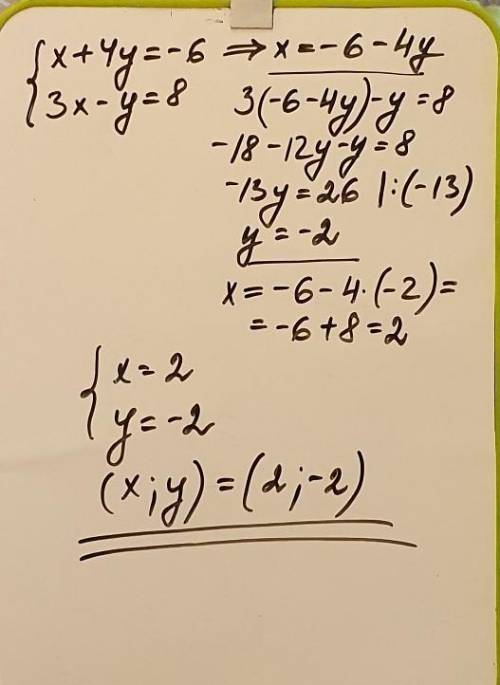 {x+4y=-6 ⇒ x=-6-4y
{3x-y=8 3(-6-4y)-y=8
-18-12y-y=8
-13y=26 |:(-13)
y=-2
x=-6-4·(-2)=
=-6+8=2
{x=2
{y=-2
(x;y)=(2;-2)